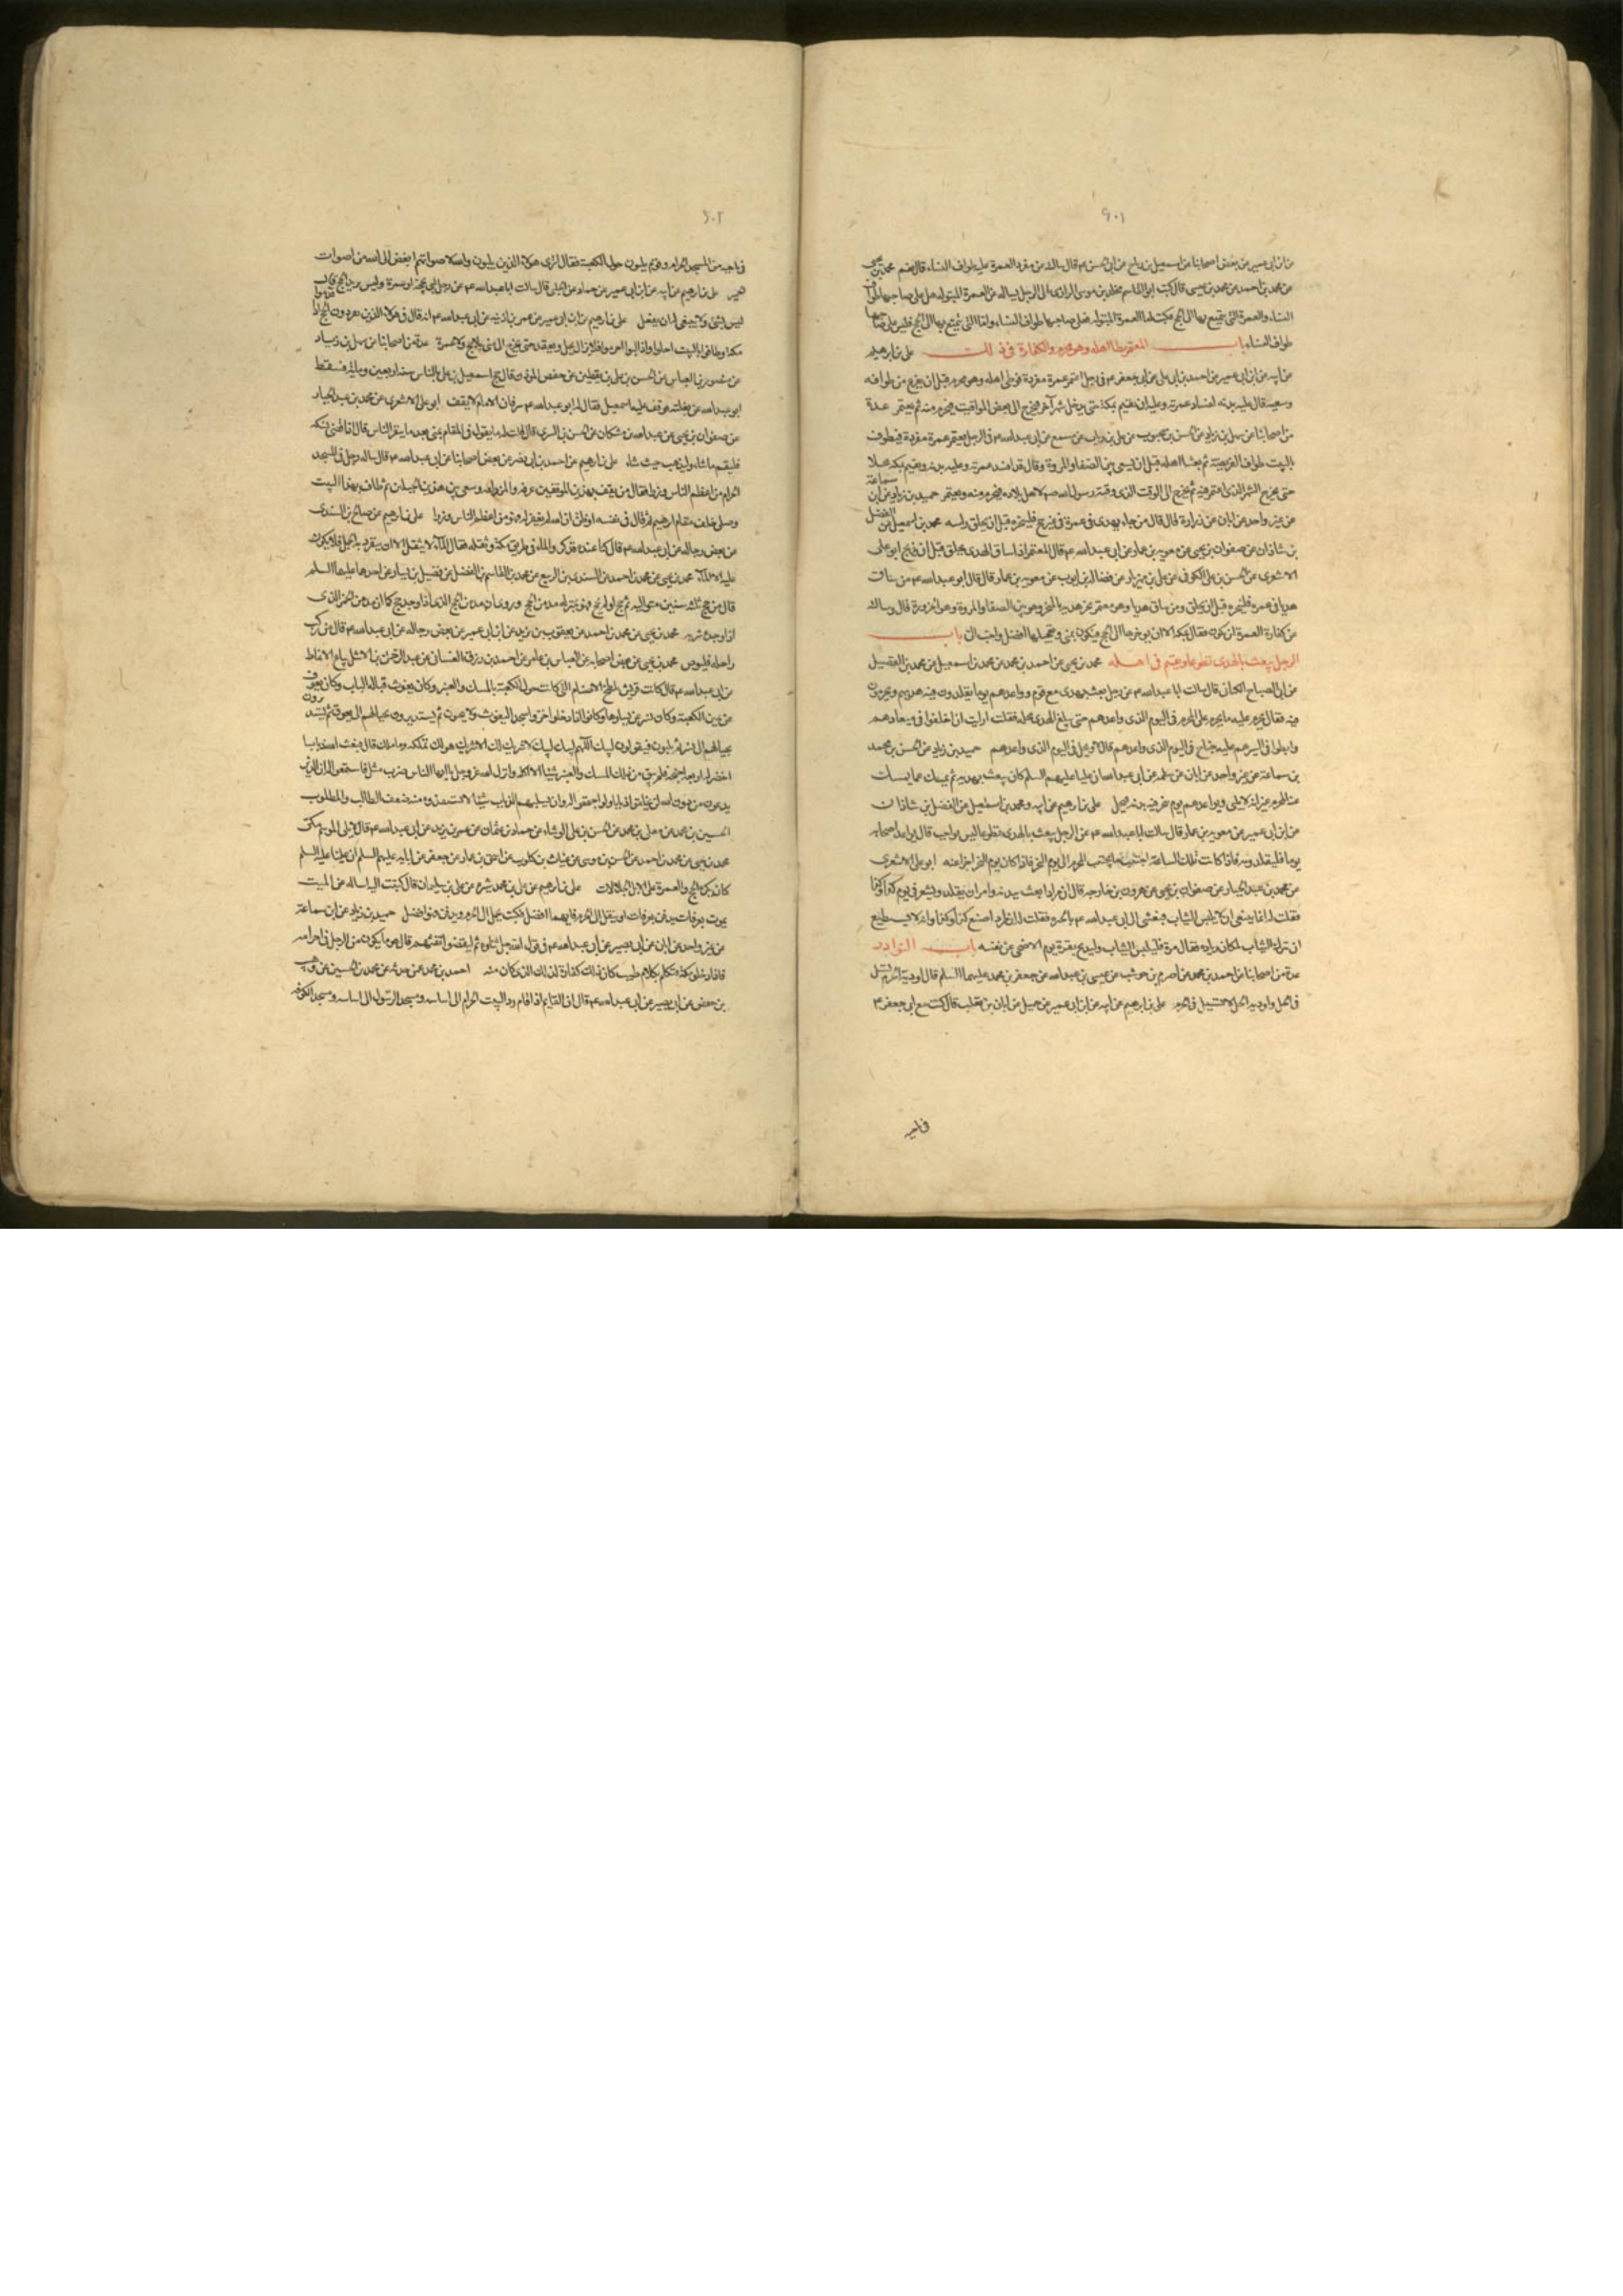 ٦٠١
عن ابن ابى عمير عن بعض اصحابنا عن اسمعيل بن رياح عن ابى الحسن ع م قال سالته عن مفرد العمرة عليه طواف النساء قال نعم محمد بن يحيى
عن محمد بن احمد عن محمد بن عيسى قال كتب ابو القاسم مخلد بن موسى الرازى الى الرجل يساله عن العمرة المبتولة هل على صاحبها طواف
النساء والعمرة التى يتمتع بها الى الحج فكتب اما العمرة المبتولة فعلى صاحبها طواف النساء واما التى يتمتع بها الى الحج فليس على صاحبها
طواف النساء باب المعتمر يطا اهله وهو محرم والكفارة فى ذلك على بن ابرهيم
عن ابيه عن ابن ابى عمير عن احمد بن ابى على عن ابى جعفر ع م فى رجل اعتمر عمرة مفردة فوطى اهله وهو محرم قبل ان يفرغ من طوافه
وسعيه قال عليه بدنه لفساد عمرته وعليه ان يقيم بمكة حتى يدخل شهر آخر فيخرج الى بعض المواقيت فيحرم منه ثم يعتمر عدة
من اصحابنا عن سهل بن زياد عن الحسن بن محبوب عن على بن رياب عن مسمع عن ابى عبد الله ع م فى الرجل يعتمر عمرة مفردة فيطوف
بالبيت طواف الفريضة ثم يغشا اهله قبل ان يسعى بين الصفا والمروة وقال قد افسد عمرته وعليه بدنه ويقيم بمكة محلا
حتى يخرج الشهر الذى اعتمر فيه ثم يخرج الى الوقت الذى وقته رسول الله صم لاهل بلاده فيحرم منه ويعتمر حميد بن زياد عن ابن سماعة
عن غير واحد عن ابان عن زرارة قال قال من جاء بهدى فى عمرة فى غير حج فلينحره قبل ان يحلق راسه محمد بن اسمعيل عن الفضل
بن شاذان عن صفوان بن يحيى عن معويه بن عمار عن ابى عبد الله ع م قال المعتمر اذا ساق الهدى يحلق قبل ان يذبح ابو على
الاشعرى عن الحسن بن على الكوفى عن على بن مهزيار عن فضالة بن ايوب عن معويه بن عمار قال قال ابو عبد الله ع م من ساق
هديا فى عمرة فلينحره قبل ان يحلق ومن ساق هديا وهو معتمر نحر هديه بالمنحر وهو بين الصفا والمروة وهو الحزورة قال وسالته
عن كفارة العمرة اين تكون فقال بمكة الا ان يؤخرها الى الحج فيكون بمنى وتعجيلها افضل واحب الى باب
الرجل يبعث بالهدى تطوعا ويقيم فى اهله محمد بن يحيى عن احمد بن محمد عن محمد بن اسمعيل عن محمد بن الفضيل
عن ابى الصباح الكنانى قال سالت ابا عبد الله ع م عن رجل بعث بهدى مع قوم وواعدهم يوما يقلدون فيه هديهم ويحرمون
فيه فقال يحرم عليه ما يحرم على المحرم فى اليوم الذى واعدهم حتى يبلغ الهدى محله فقلت ارايت ان اخلفوا فى ميعادهم
وابطوا فى السير عليه جناح فى اليوم الذى واعدهم قال لا ويحل فى اليوم الذى واعدهم حميد بن زياد عن الحسن بن محمد
بن سماعة عن غير واحد عن ابان عن سلمة عن ابى عبد الله ان عليا عليهم السلم كان يبعث بهديه ثم يمسك عما يمسك
عنه المحرم غير انه لا يلبى ويواعدهم يوم ينحر فيه بدنه فيحل على بن ابرهيم عن ابيه ومحمد بن اسمعيل عن الفضل بن شاذان
عن ابن ابى عمير عن معويه بن عمار قال سالت ابا عبد الله ع م عن الرجل يبعث بالهدى تطوعا ليس بواجب قال يواعد اصحابه
يوما فيقلدونه فاذا كانت تلك الساعة اجتنب ما يجتنب المحرم الى يوم النحر فاذا كان يوم النحر اجزا عنه ابو على الاشعرى
عن محمد بن عبد الجبار عن صفوان بن يحيى عن هرون بن خارجه قال ان مرادا بعث ببدنه وامر ان تقلد وتشعر فى يوم كذا وكذا
فقلت له انما ينبغى ان لا يلبس الثياب فبعثنى الى ابى عبد الله ع م بالحيرة فقلت له ان مرادا صنع كذا وكذا وانه لا يستطيع
ان يترك الثياب لمكان زياد فقال مره فليلبس الثياب وليذبح بقرة يوم الاضحى عن نفسه باب النوادر
عدة من اصحابنا عن احمد بن محمد عن اصرم بن حوشب عن عيسى بن عبد الله عن جعفر بن محمد عليهما السلم قال اودية الحرم تسيل
فى الحل واوديه الحل لا تسيل فى الحرم على بن ابرهيم عن ابيه عن ابن ابى عمير عن جميل عن ابان بن تغلب قال كنت مع ابى جعفر ع م
٦٠٢
فى ناحيه من المسجد الحرام وقوم يلبون حول الكعبة فقال اترى هؤلاء الذين يلبون والله لاصواتهم ابغض الى الله من اصوات
الحمير على بن ابرهيم عن ابيه عن ابن ابى عمير عن حماد عن الحلبى قال سالت ابا عبد الله ع م عن رجل لبى بحجة او عمرة وليس يريد الحج قال
ليس بشئ ولا ينبغى له ان يفعل على بن ابرهيم عن ابن ابى عمير عن عمر بن اذينه عن ابى عبد الله ع م انه قال فى هؤلاء الذين يفردون الحج اذا قدموا
مكة وطافوا بالبيت احلوا واذا لبوا احرموا فلا يزال يحل ويعقد حتى يخرج الى منى بلا حج ولا عمرة عدة من اصحابنا عن سهل بن زياد
عن منصور بن العباس عن الحسن بن على بن يقطين عن حفص المؤذن قال حج اسمعيل بن على بالناس سنه اربعين ومايه فسقط
ابو عبد الله عن بغلته فوقف عليه اسمعيل فقال له ابو عبد الله ع م سر فان الامام لا يقف ابو على الاشعرى عن محمد بن عبد الجبار
عن صفوان بن يحيى عن عبد الله بن مسكان عن الحسن بن السرى قال قلت له ما يقول فى المقام بمنى بعد ما ينفر الناس قال اذا قضى نسكه
فليقم ما شاء وليذهب حيث شاء على بن ابرهيم عن احمد بن ابى نصر عن بعض اصحابنا عن ابى عبد الله ع م قال ساله رجل فى المسجد
الحرام من اعظم الناس وزرا فقال من يقف بهذين الموقفين عرفه والمزدلفه وسعى بين هذين الجبلين ثم طاف بهذا البيت
وصلى خلف مقام ابرهيم ثم قال فى نفسه او ظن ان الله لم يغفر له فهو من اعظم الناس وزرا على بن ابرهيم عن صالح بن السندى
عن بعض رجاله عن ابى عبد الله ع م قال كنا عنده فذكروا الماء فى طريق مكة وثقله فقال الماء لا يثقل الا ان ينفرد به الجمل فلا يكون
عليه الا الماء محمد بن يحيى عن محمد بن احمد عن السندى بن الربيع عن محمد بن القاسم بن الفضل عن فضيل بن يسار عن احدهما عليهما السلم
قال من حج ثلث سنين متواليه ثم حج او لم يحج فهو بمنزلة مدمن الحج وروى ان مدمن الحج الذى اذا وجد حج كما ان مدمن الخمر الذى
اذا وجده شربه محمد بن يحيى عن محمد بن احمد عن يعقوب بن يزيد عن ابن ابى عمير عن بعض رجاله عن ابى عبد الله ع م قال من ركب
راحلة فليوص محمد بن يحيى عن بعض اصحابه عن العباس بن عامر عن احمد بن رزق الغمشانى عن عبد الرحمن بن الاشل بياع الانماط
عن ابى عبد الله ع م قال كانت قريش تلطخ الاصنام التى كانت حول الكعبة بالمسك والعنبر وكان يغوث قبال الباب وكان يعوق
عن يمين الكعبة وكان نسر عن يسارها وكانوا اذا دخلوا خروا سجدا ليغوث ولا ينحنون ثم يستديرون بحيالهم الى يعوق ثم يستديرون
بحيالهم الى نسر ثم يلبون فيقولون لبيك اللهم لبيك لبيك لا شريك لك الا شريك هو لك تملكه وما ملك قال فبعث الله ذبابا
اخضر له اربعه اجنحة فلم يبق من ذلك المسك والعنبر شيئا الا اكله وانزل الله عز وجل يا ايها الناس ضرب مثل فاستمعوا له ان الذين
يدعون من دون الله لن يخلقوا ذبابا ولو اجتمعوا له وان يسلبهم الذباب شيئا لا يستنقذوه منه ضعف الطالب والمطلوب
الحسين بن محمد عن معلى بن محمد عن الحسن بن على الوشاء عن حماد بن عثمان عن عمر بن يزيد عن ابى عبد الله ع م قال لا يلى الموسم مكى
محمد بن يحيى عن محمد بن احمد عن الحسن بن موسى عن غياث بن كلوب عن اسحق بن عمار عن جعفر عن ابايه عليهم السلم ان عليا عليه السلم
كان يكره الحج والعمرة على الابل الجلالات على بن ابرهيم عن على بن محمد شيره عن على بن سليمان قال كتبت اليه اساله عن الميت
يموت بعرفات يدفن بعرفات او ينقل الى الحرم فايهما افضل فكتب يحمل الى الحرم ويدفن فهو افضل حميد بن زياد عن ابن سماعة
عن غير واحد عن ابان عن ابى بصير عن ابى عبد الله ع م فى قول الله جل ثناؤه ثم ليقضوا تفثهم قال هو ما يكون من الرجل فى احرامه
فاذا دخل مكة فتكلم بكلام طيب كان ذلك كفارة لذلك الذى كان منه احمد بن محمد عن حدثه عن محمد بن الحسين عن وهيب
بن حفص عن ابى بصير عن ابى عبد الله ع م قال ان القايم اذا قام رد البيت الحرام الى اساسه ومسجد الرسول الى اساسه ومسجد الكوفه